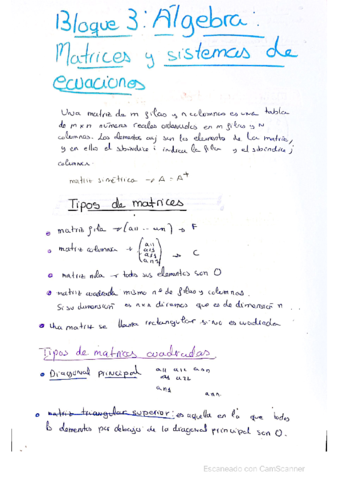 Bloque 3: Álgebra:
Matrices y sistemas de
ecuaciones
Una matriz de m filas y n columnas es una tabla
de m x n números reales ordenados en m filas y N
columnas. Los elementos aij son los elementos de la matriz,
y en ello el subíndice i indica la fila y el subíndice j
columna.
matriz simétrica → A = A^t
Tipos de matrices
• matriz fila → (a11 ... an) → F
• matriz columna → (a11 a21 a31 an1) → C
• matriz nula → todos sus elementos son 0
• matriz cuadrada mismo nº de filas y columnas.
Si su dimensión es nxn diremos que es de dimensión n
• Una matriz se llama rectangular si no es cuadrada
Tipos de matrices cuadradas
• Diagonal principal a11 a12 a1n
a21 a22
an1 ann
• matriz triangular superior: es aquella en la que todos
los elementos por debajo de la diagonal principal son 0.
Escaneado con CamScanner